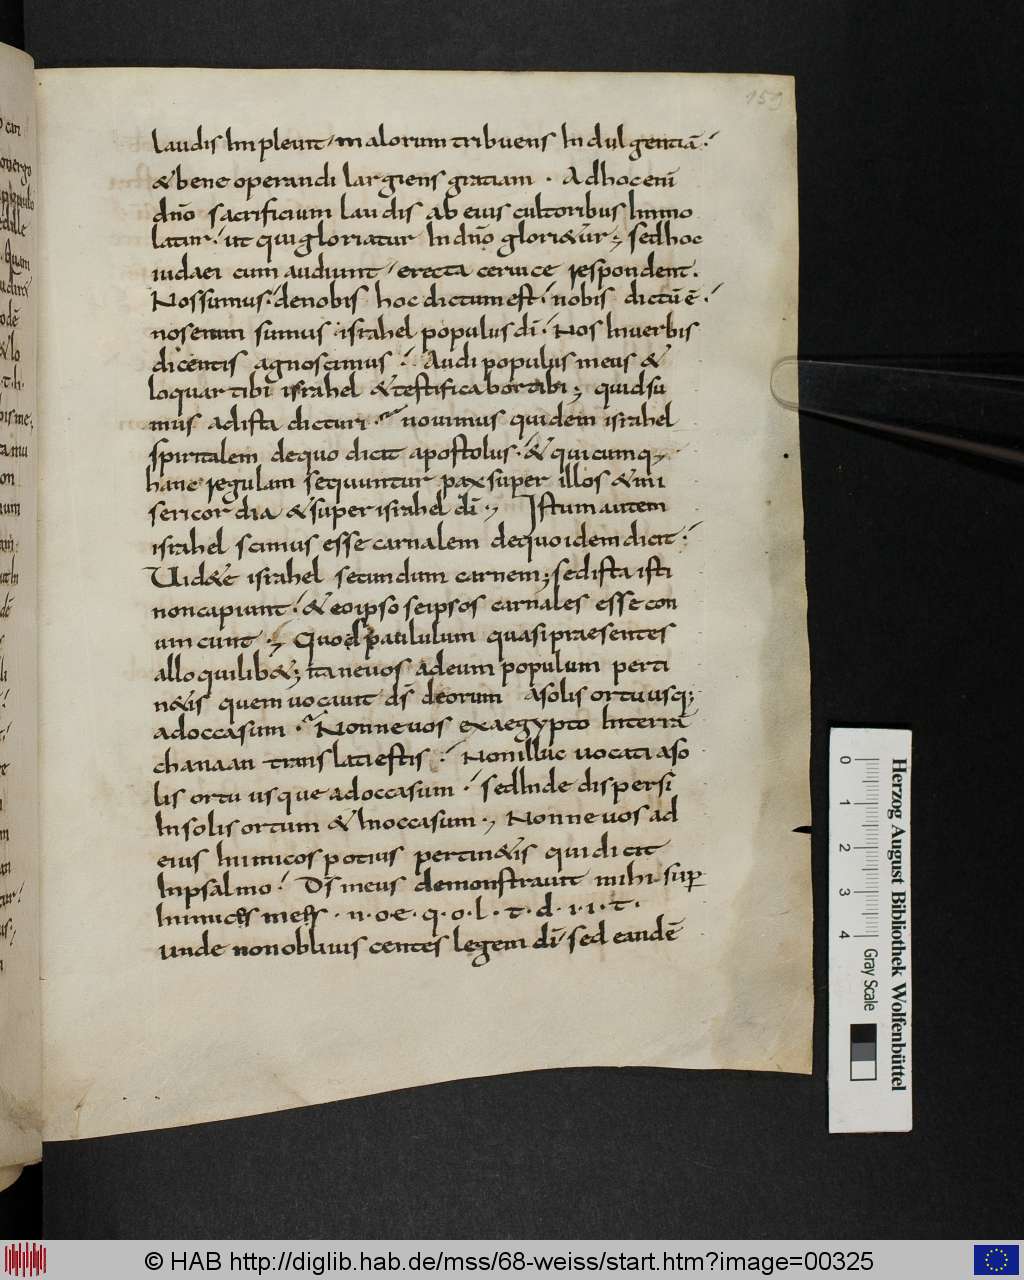 159
laudis Impleuit, malorum tribuens Indulgentiā.
& bene operandi largiens gratiam · Ad hoc eni̅
dn̅o sacrificium laudis ab eius cultoribus Immo
latur · ut qui gloriatur In dn̅o glori&ur ; sed hoc
iudaei cum audiunt, erecta ceruice respondent ·
Nos sumus · de nobis hoc dictum est · nobis dictū ē ·
nos enim sumus israhel populus dī · Nos In uerbis
dicentis agnoscimus · Audi populus meus &
loquar tibi israhel & testificabor tibi ; quid su
mus ad ista dicturi · nouimus quidem israhel
spiritalem de quo dicit apostolus · & quicumq;
hanc regulam sequuntur pax super illos & mi
sericordia & super israhel dī ; Istum autem
israhel scimus esse carnalem de quo idem dicit ·
Uid&e israhel secundum carnem ; sed ista isti
non capiunt · & eo ipso se ipsos carnales esse con
uincunt ·; Quos paululum quasi praesentes
alloqui lib&; itane uos ad eum populum perti
n&is quem uocauit dī deorum a solis ortu usq;
ad occasum · Nonne uos ex aegypto In terrā
chanaan translati estis · Non illuc uocati a so
lis ortu usque ad occasum · sed Inde dispersi
In solis ortum & In occasum ·; Nonne uos ad
eius Inimicos potius pertin&is qui dicit
In psalmo · Ds̅ meus demonstrauit mihi sup̱
Inimicos meos · n · o · e · q · o · l · t · d · i · i · t ·
unde non obliuiscentes legem dī · sed eandē
Herzog August Bibliothek Wolfenbüttel
0 1 2 3 4
Gray Scale
© HAB http://diglib.hab.de/mss/68-weiss/start.htm?image=00325